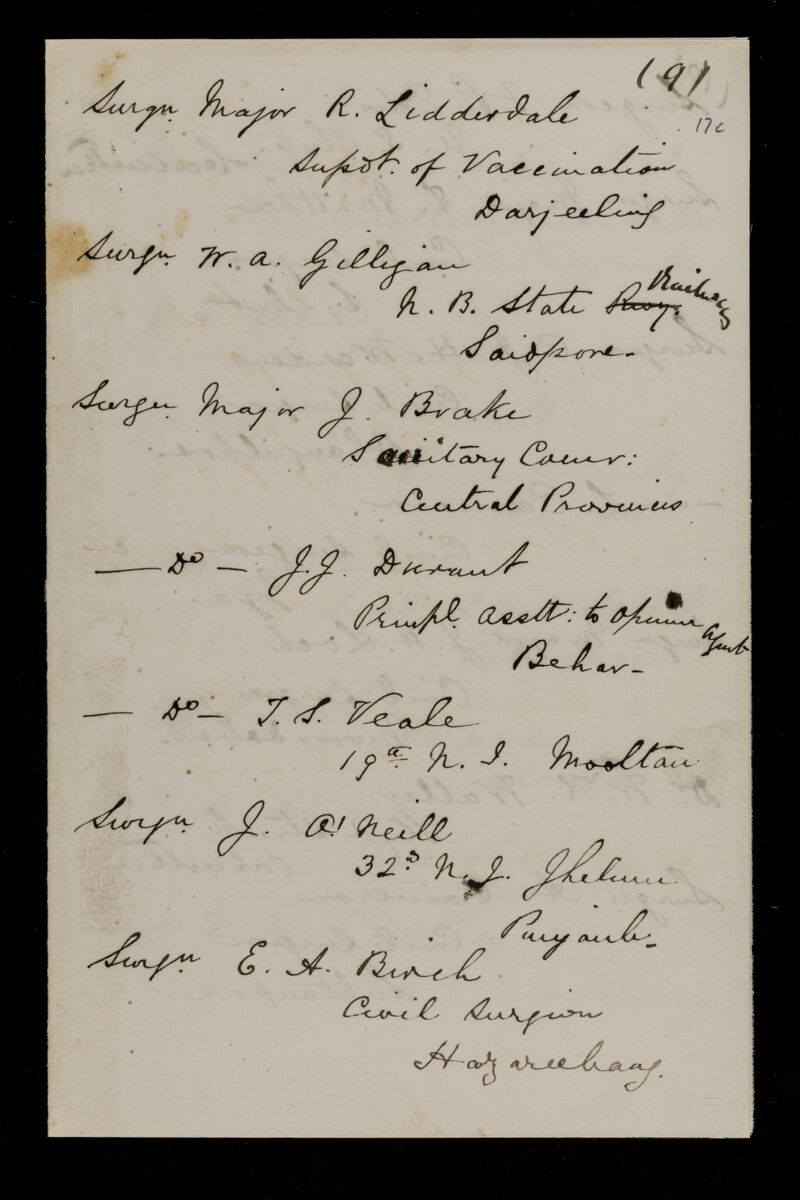 191
170
Surgn. Major R. Lidderdale
Supdt. of Vaccination
Darjeeling
Surgn. W. A. Gilligan
N. B. State Rwy. Railway
Saidpore -
Surgn. Major J. Brake
Sanitary Commr:
Central Provinces
— Do — J. J. Durant
Prinpl. Asstt: to Opium Agent
Behar -
— Do — T. S. Veale
19th N. I. Mooltan
Surgn J. O'Neill
32d N. I. Jhelum
Punjaub -
Surgn E. A. Birch
Civil Surgeon
Hazareebaug.